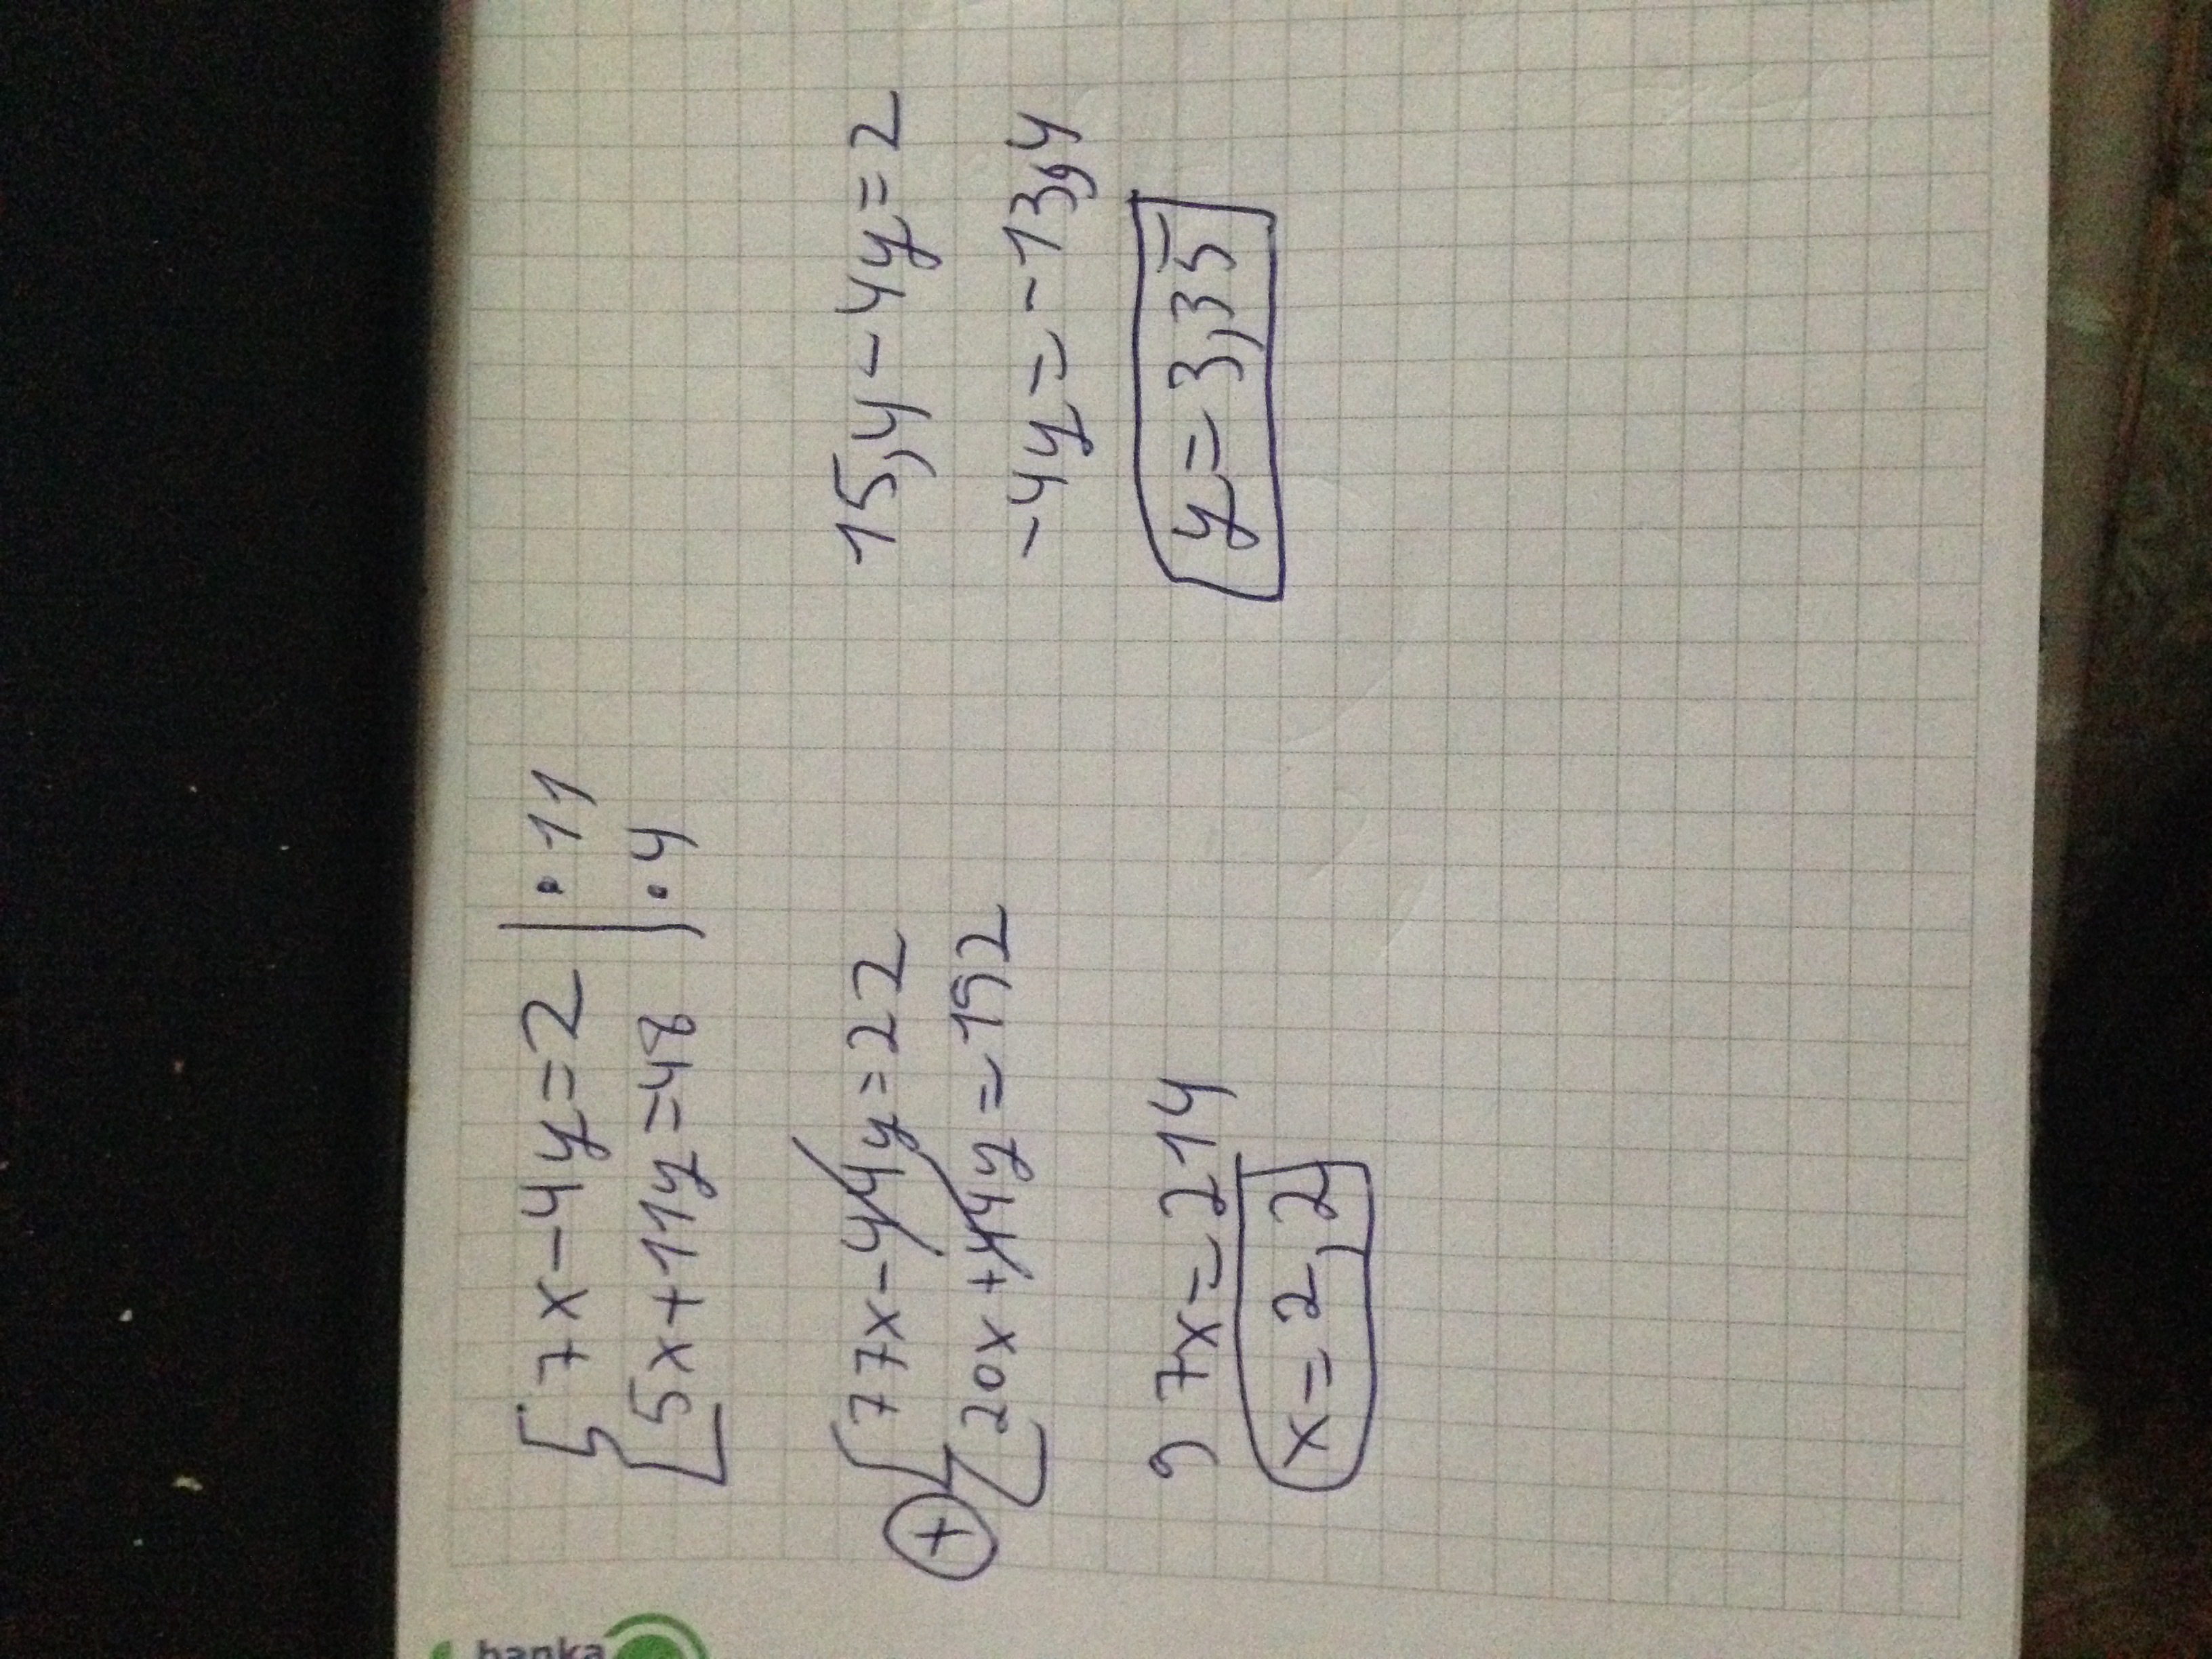 7x-4y=2 |·11
5x+11y=48 |·4
77x-44y=22
+
20x+44y=192
97x=214
x=2,2
15,4-4y=2
-4y=-13,4
y=3,35
banka